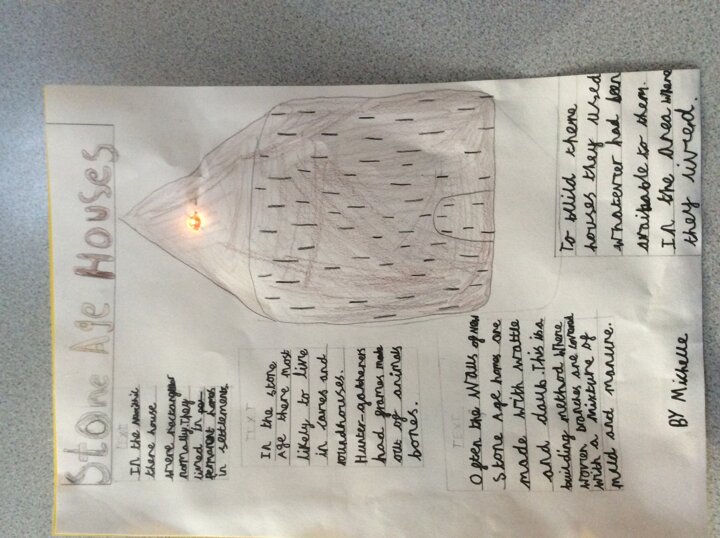 Stone Age Houses
TEXT
In the
there house
where rectangular
normally They
lived in per-
permanent homes
in settlements
TEXT
In the stone
Age there most
likely to live
in caves and
roundhouses.
Hunter-gatherers
had frames made
out of animals
bones.
TEXT
Often the Walls of New
Stone Age homes are
made with wattle
and daub. This is a
building method where
woven branches are covered
with a mixture of
mud and manure.
To build theme
houses they used
whatever had been
available to them.
In the area where
they lived.
BY Michelle